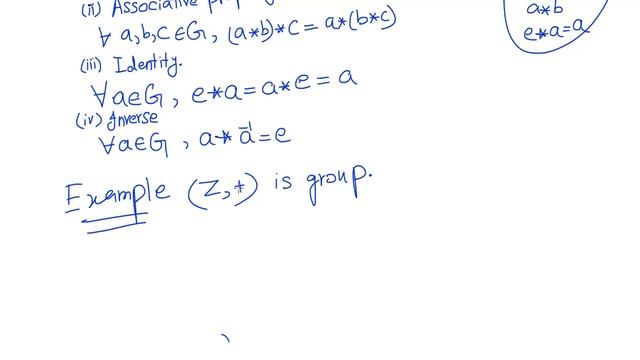 (ii) Associative
∀ a,b,c∈G, (a*b)*c = a*(b*c)
(iii) Identity.
∀a∈G, e*a=a*e=a
(iv) Inverse
∀a∈G, a*a⁻¹=e
Example (Z,*) is group.
a*b
e*a=a